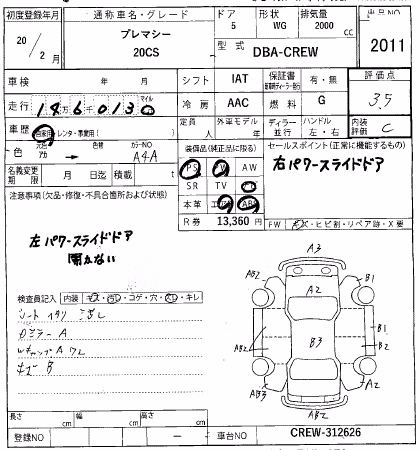 初度登録年月 通称車名・グレード ドア 形状 排気量 出品NO
20/2月 プレマシー 20CS 5 WG 2000 cc
型式 DBA-CREW 2011
車検 年 月 シフト IAT 保証書 有・無 評価点
走行 マイル 冷房 AAC 燃料 G 3.5
車歴 自家用・レンタ・事業用( ) 定員 人 外車モデル 年 ディーラー 並行 ハンドル 左・右 内装評価 C
色 元色 アカ 色替 カラーNO A4A
装備品(純正品に限る) セールスポイント(正常に機能するもの)
PS PW AW
右パワースライドドア
名義変更期限 月 日迄 積載 t
SR TV
本革
注意事項(欠品・修復・不具合箇所および状態)
R券 13,360 円
FW キズ・ヒビ割・リペア跡・X要
左パワースライドドア
開かない
A3
AB2 A2 B1
検査員記入 内装 キズ・コゲ・穴・キレ
A
B3 B1
AB2 B2
Wキャップ A ワレ
キズ B
AB3 A2
AB2
長さ cm 幅 cm 高さ cm
登録NO 車台NO CREW-312626